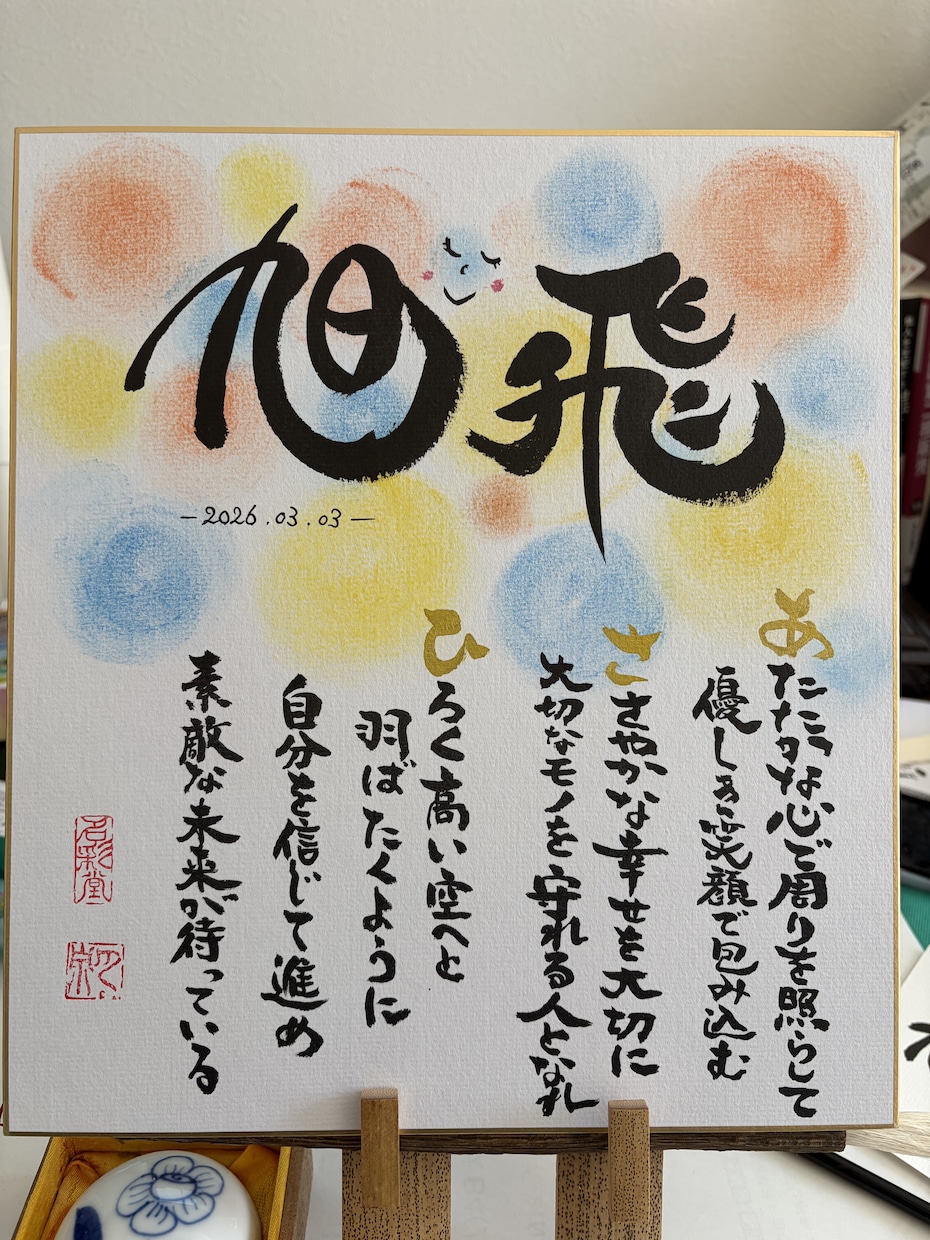 旭飛
-2026.03.03-
あたたかな心で周りを照らして
優しき笑顔で包み込む
ささやかな幸せを大切に
大切なモノを守れる人となれ
ひろく高い空へと
羽ばたくように
自分を信じて進め
素敵な未来が待っている
名彩堂